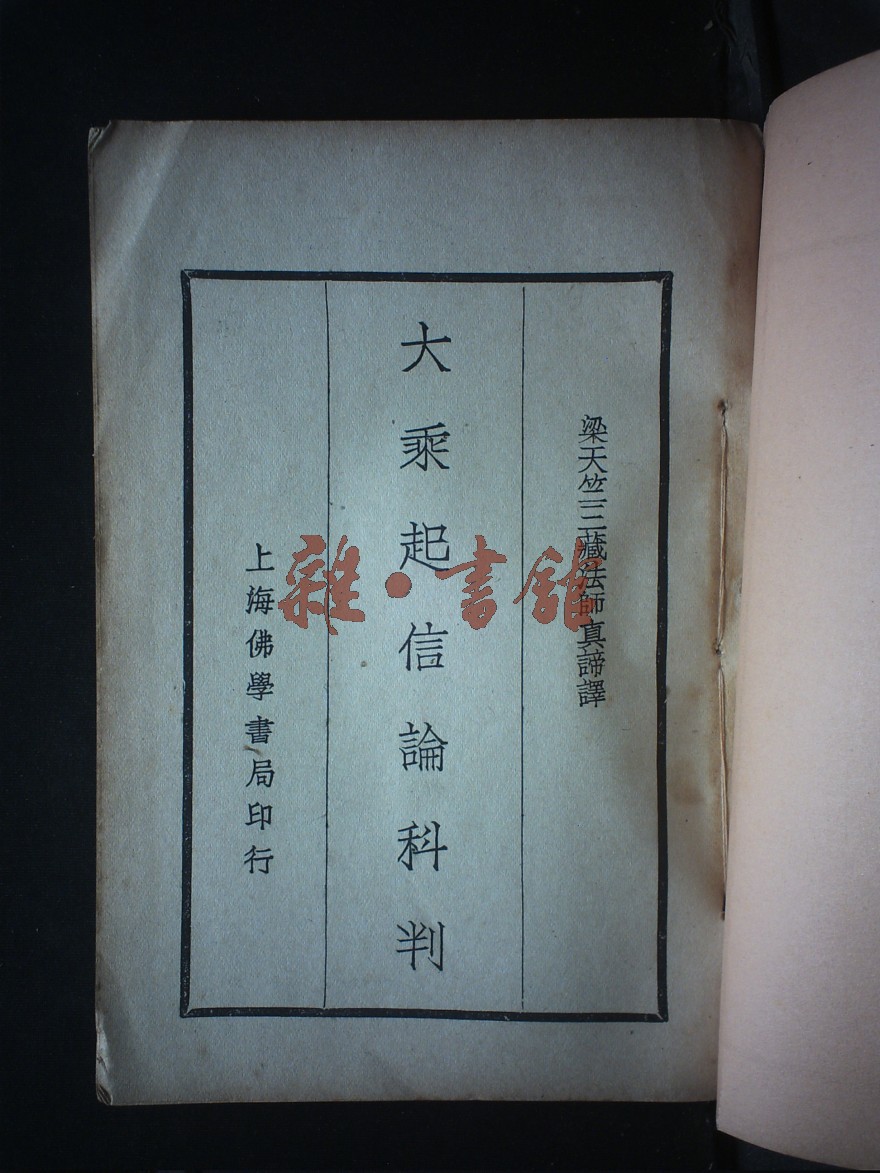 梁天竺三藏法師真諦譯
大乘起信論科判
上海佛學書局印行
雜·書館